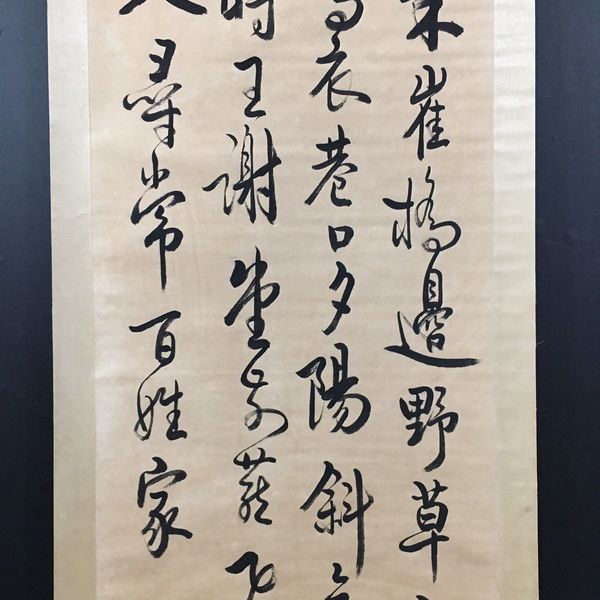 朱雀橋邊野草
烏衣巷口夕陽斜
時王謝堂前燕飛
入尋常百姓家